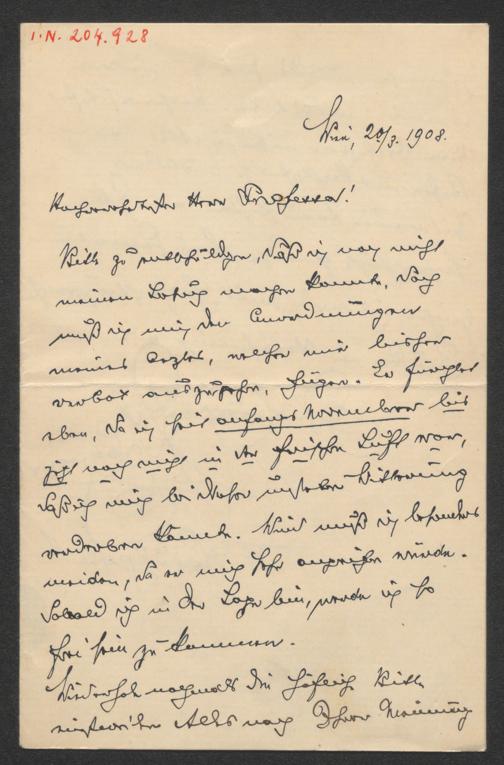 I.N. 204.928
Wien, 20/3. 1908.
Hochverehrter Herr Professor!
Bitte zu entschuldigen, daß ich noch nicht
meinen Besuch machen konnte, doch
muß ich mich den Anordnungen
meines Arztes, welcher mir bisher
verbot auszugehen, fügen. Er fürchtet
eben, da ich seit anfangs November bis
jetzt noch nicht in der frischen Luft war,
daß ich mich bei dieser unsteten Witterung
verderben könnte. Wind muß ich besonders
meiden, da er mich sehr angreifen würde.
Sobald ich in der Lage bin, werde ich so
frei sein zu kommen.
Wiederhole nochmals die höfliche Bitte
einstweilen Alles nach Ihrer Meinung